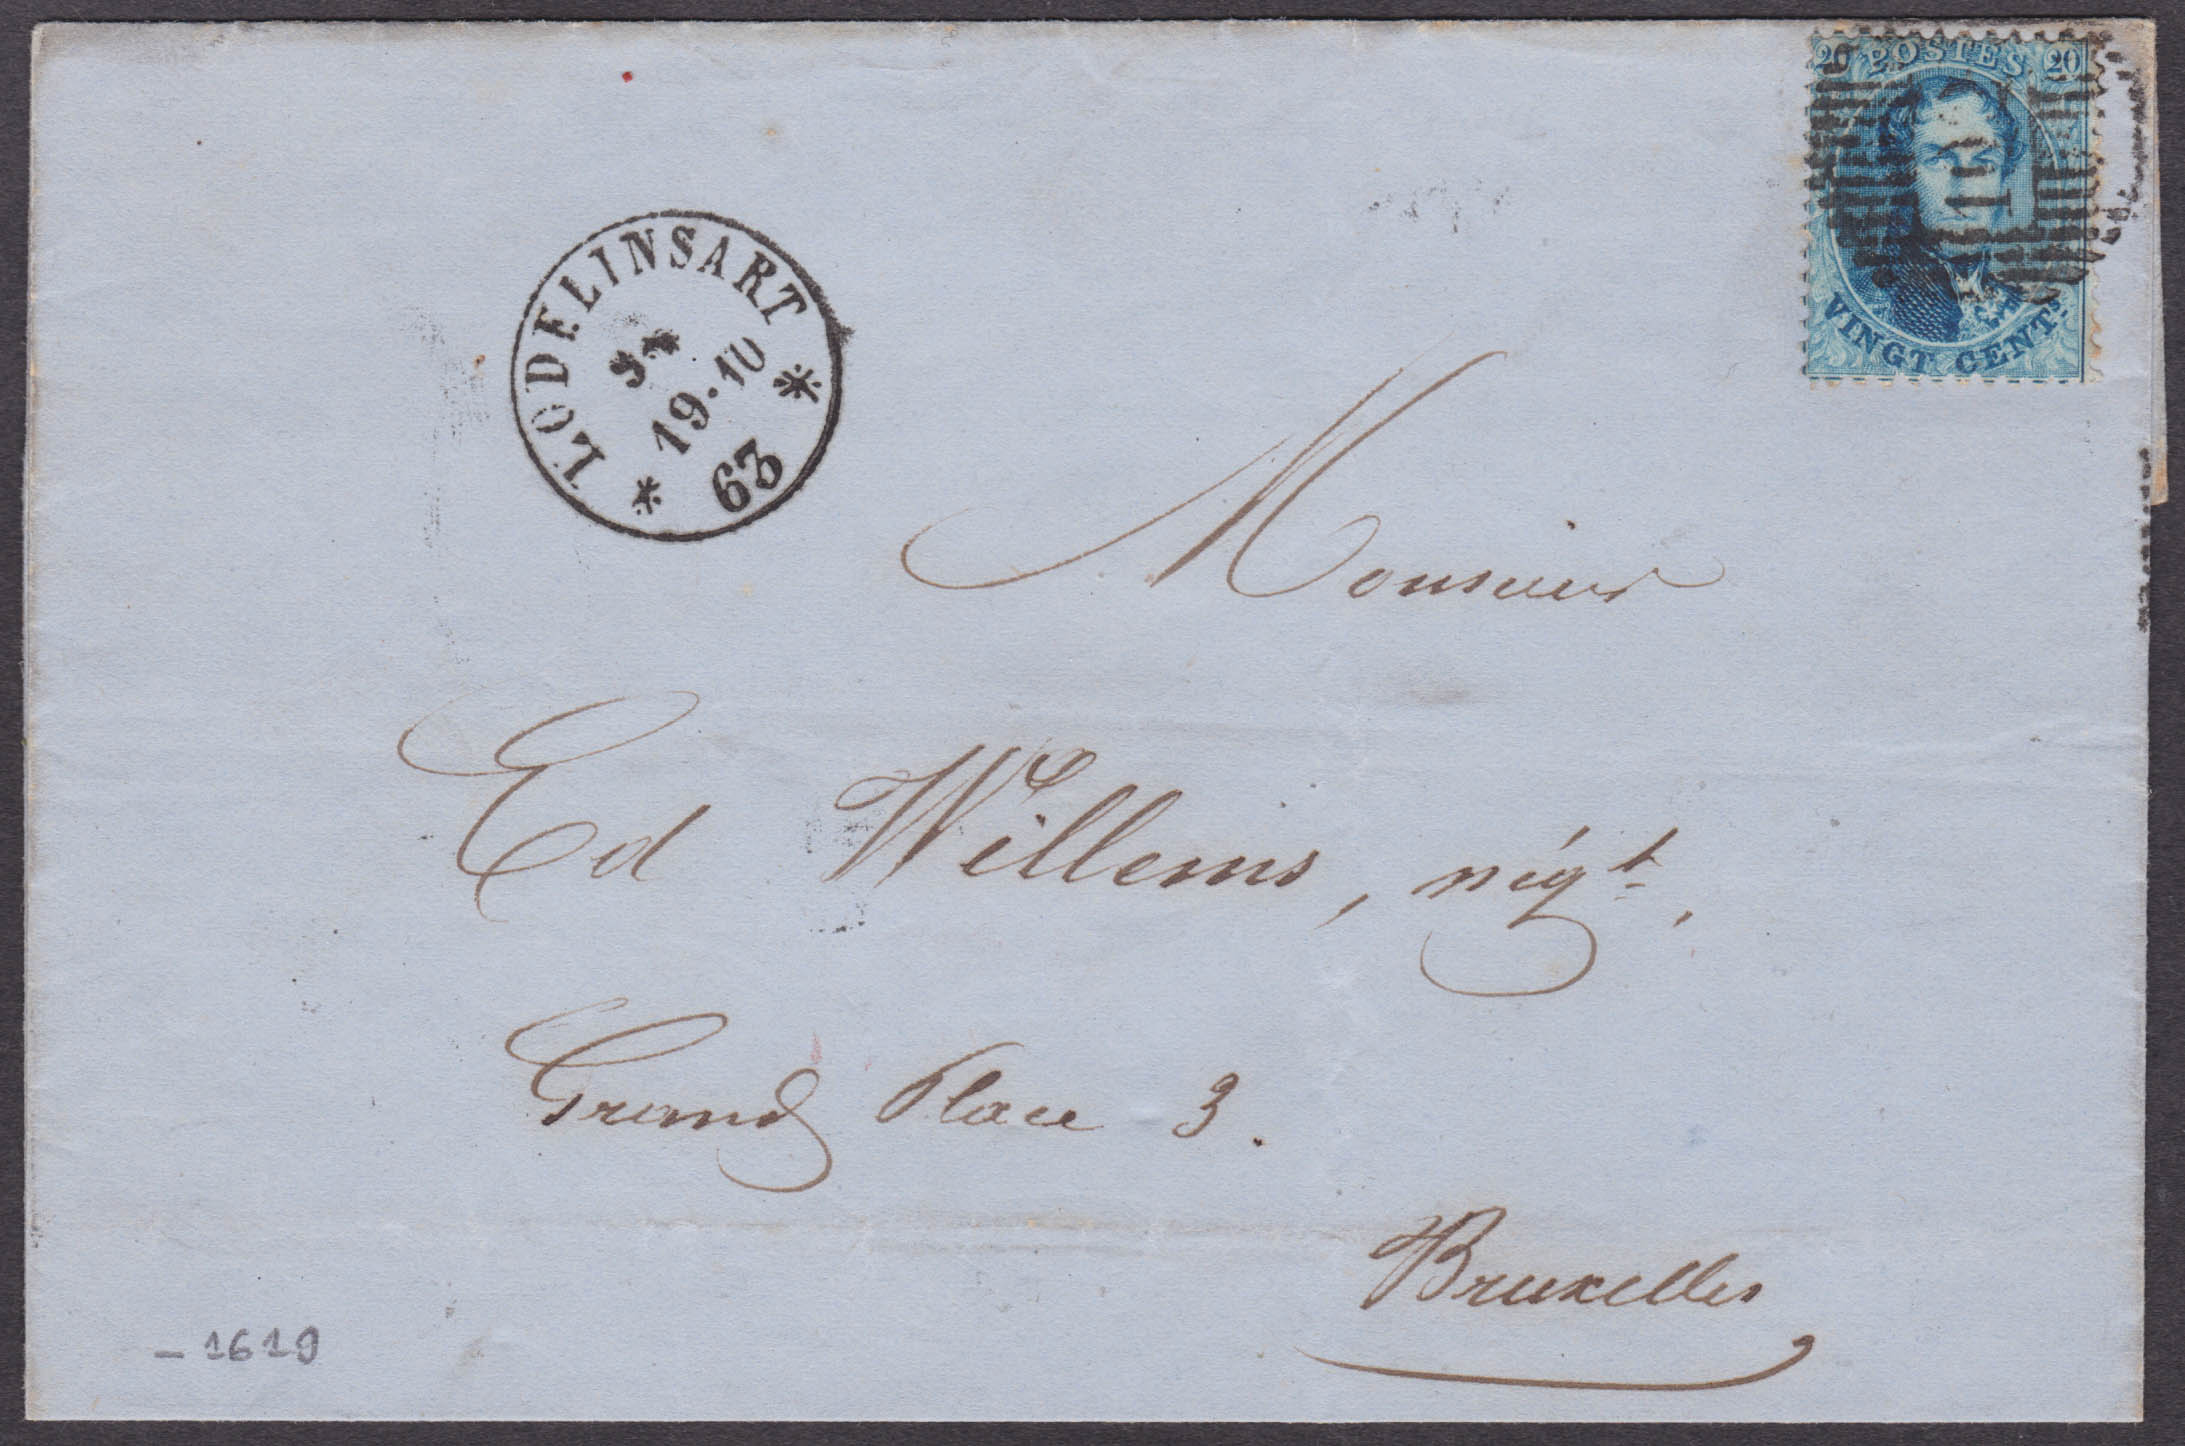 20 POSTES 20
VINGT CENTS
LODELINSART
19·10
63
Monsieur
Ed Willems, négt.
Grand Place 3.
Bruxelles
- 1619